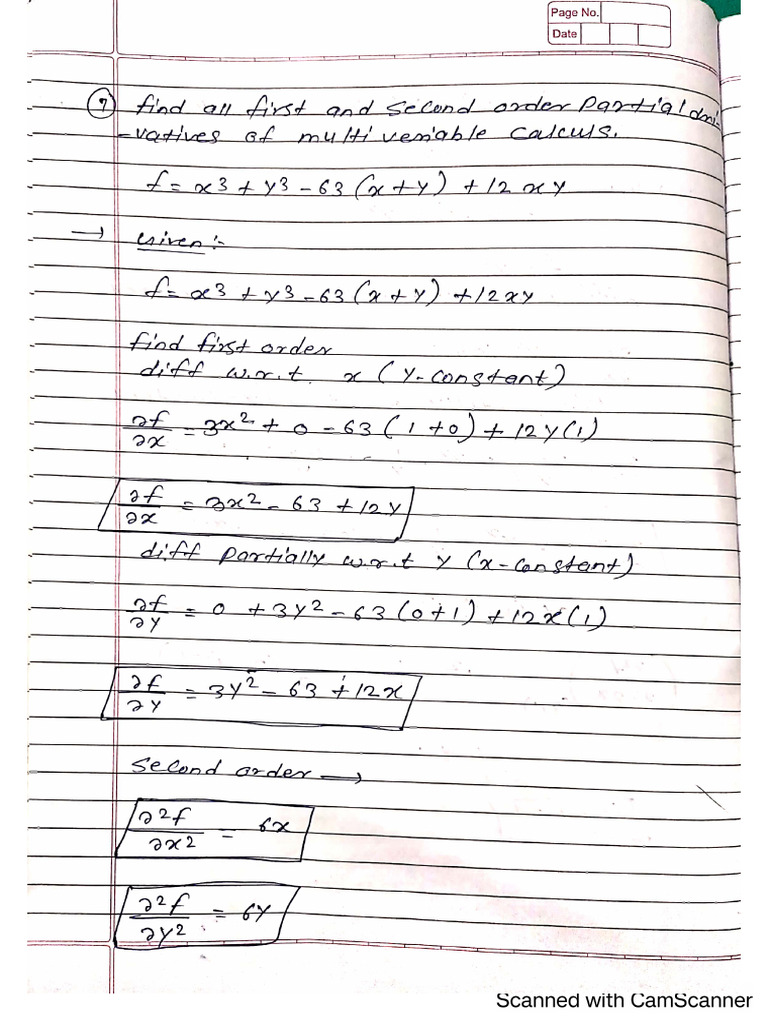 Page No.
Date
7 find all first and second order Partial dri-
-vatives of multi veriable calculs.
f = x3 + y3 - 63 (x+y) + 12 xy
→ Given :-
f = x3 + y3 - 63 (x + y) + 12xy
find first order
diff w.r.t. x (y-constant)
∂f/∂x = 3x2 + 0 - 63 (1 + 0) + 12y(1)
∂f/∂x = 3x2 - 63 + 12y
diff Partially w.r.t y (x-constant)
∂f/∂y = 0 + 3y2 - 63 (0+1) + 12x(1)
∂f/∂y = 3y2 - 63 + 12x
second order →
∂2f/∂x2 = 6x
∂2f/∂y2 = 6y
Scanned with CamScanner